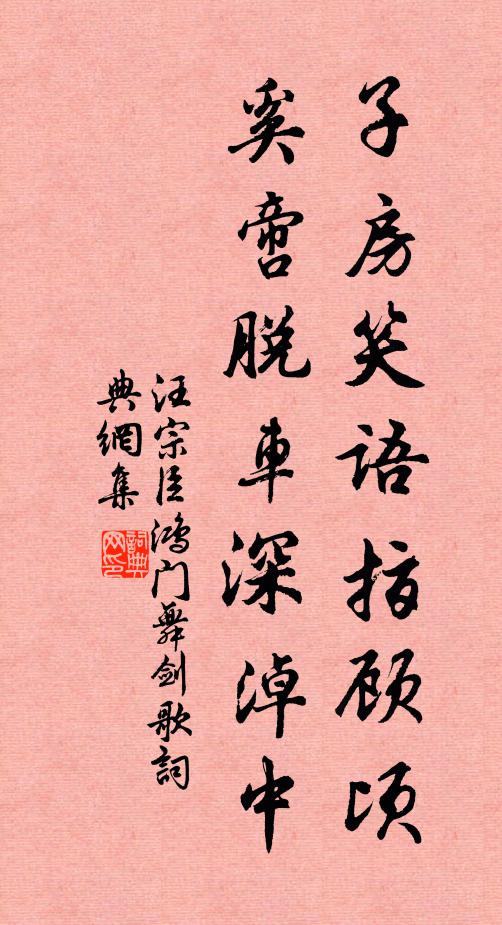 子房笑语指顾顷
奚啻脱车深淖中
汪宗臣鸿门舞剑歌詞
典網集
詞典
网印